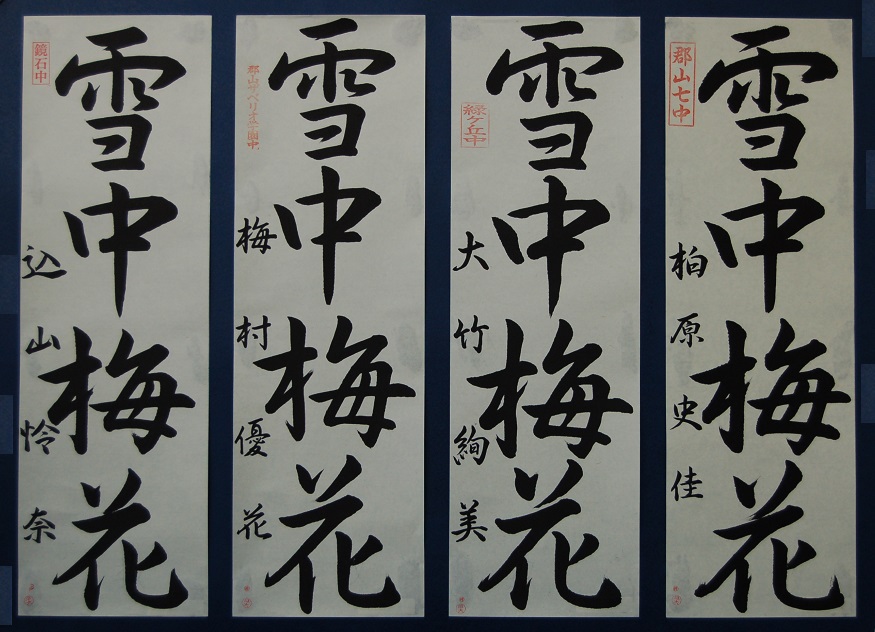 雪中梅花
郡山七中
柏原史佳
雪中梅花
緑ケ丘中
大竹絢美
雪中梅花
梅村優花
雪中梅花
鏡石中
込山怜奈